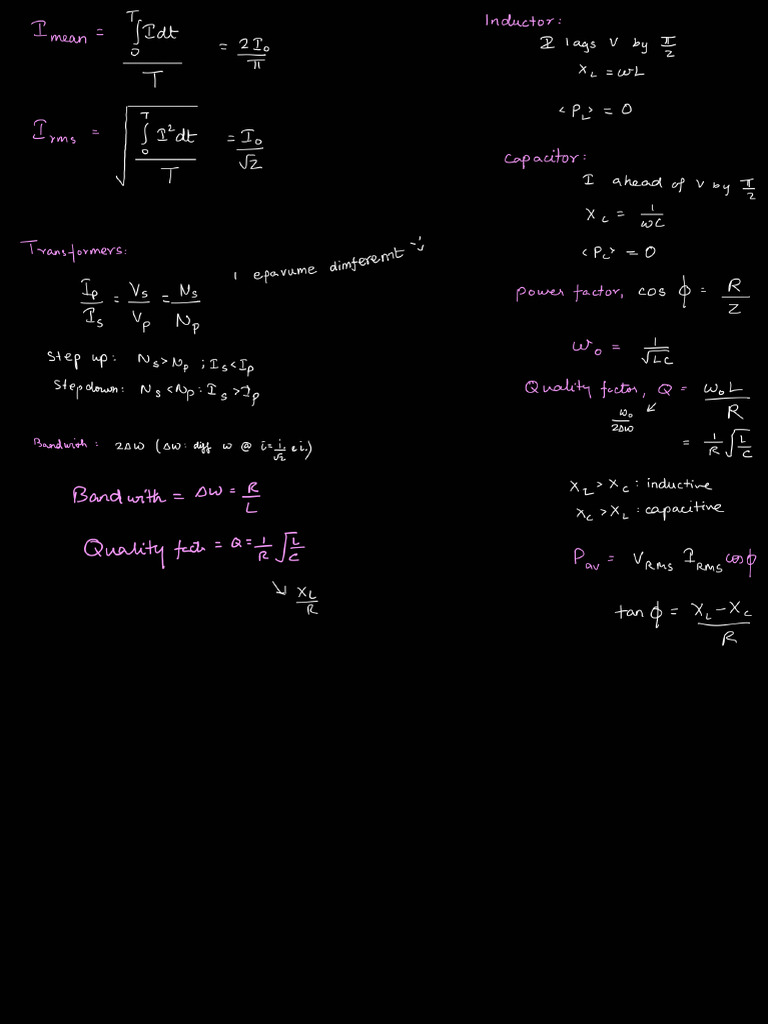 I_mean = ∫₀ᵀ I dt / T = 2I₀/π
I_rms = √(∫₀ᵀ I² dt / T) = I₀/√2
Transformers:
I_p/I_s = V_s/V_p = N_s/N_p
I epavume dimferemt
Step up: N_s > N_p ; I_s < I_p
Step down: N_s < N_p : I_s > I_p
Bandwith: 2Δω (Δω: diff ω @
Bandwith = Δω = R/L
Quality = Q = 1/R √(L/C)
↘ X_L/R
Inductor:
I lags V by π/2
X_L = ωL
<P_L> = 0
Capacitor:
I ahead of V by π/2
X_C = 1/ωC
= 0
power factor, cos ϕ = R/Z
ω₀ = 1/√LC
Quality factor, Q = ω₀L/R
ω₀/2Δω ↙
= 1/R √(L/C)
X_L > X_C : inductive
X_C > X_L : capacitive
P_av = V_RMS I_RMS cosϕ
tan ϕ = (X_L - X_C)/R